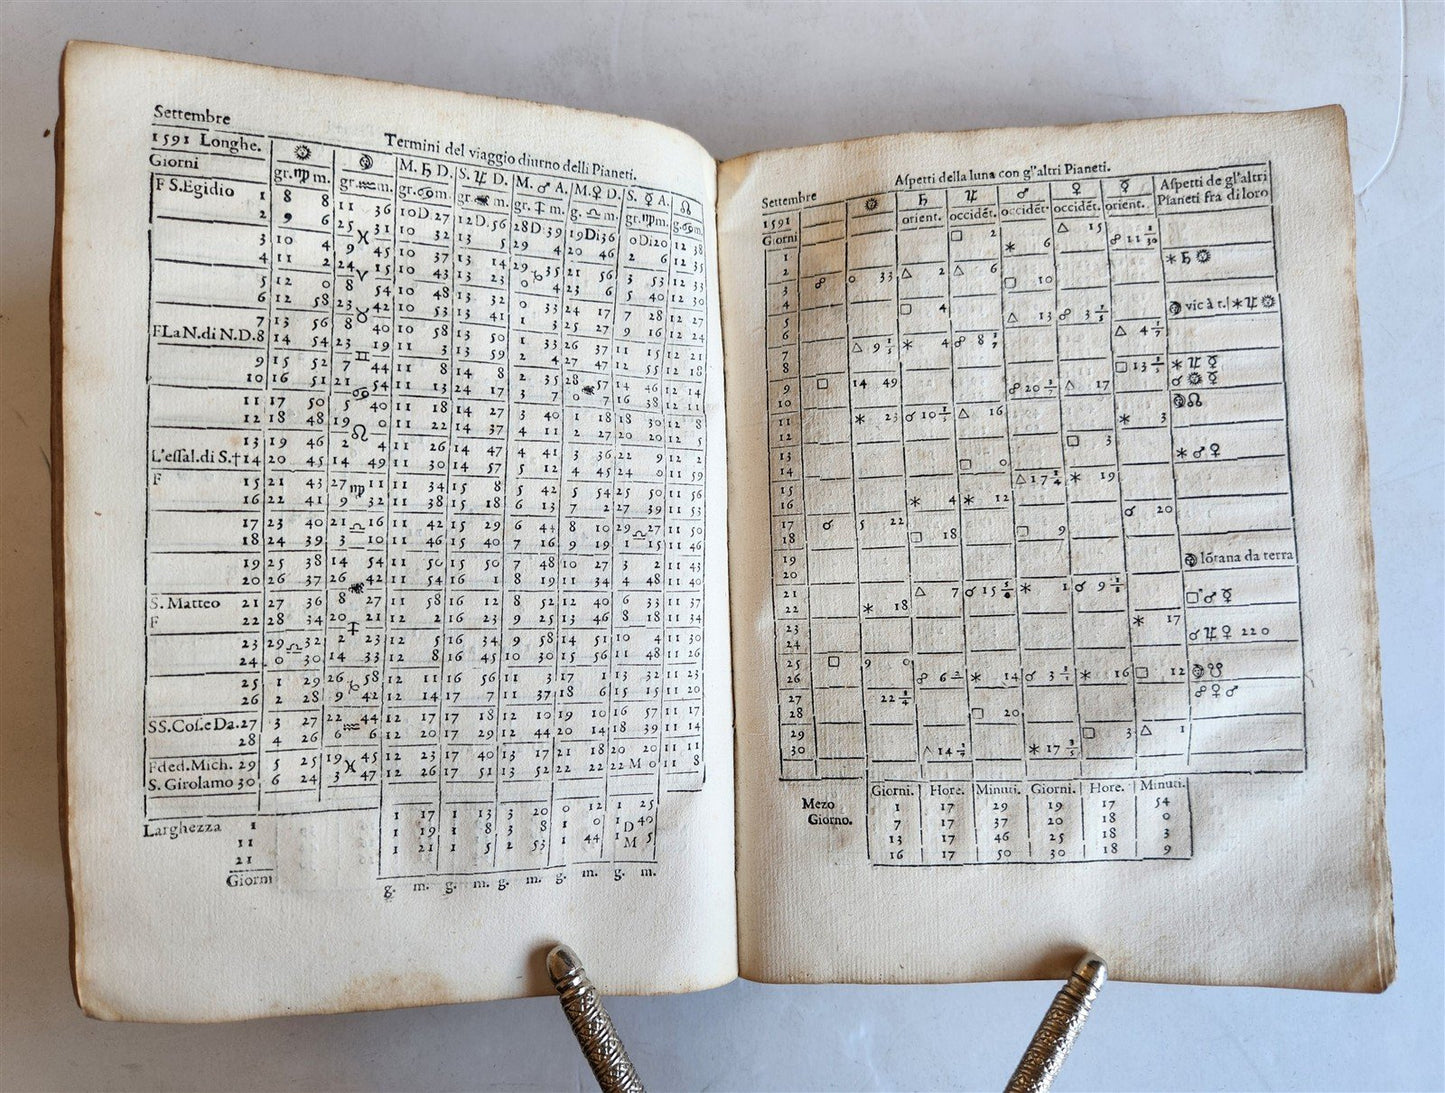 Settembre
Termini del viaggio diurno delli Pianeti.
1591 Longhe. ☼ M. ♄ D. S. ♃ D. M. ♂ A. M. ♀ D. S. ☿ A. ☊
Giorni gr. ♍ m. gr. ♒ m. gr. ♋ m. gr. m. gr. ♐ m. g. ♎ m. gr. ♍ m. g. ♋ m.
F S. Egidio 1 8 8 11 36 10 D. 27 12 D. 56 28 D. 39 19 Di 36 0 Di 20 12 38
2 9 6 25 31 10 32 13 5 29 4 20 46 2 6 12 35
3 10 4 9 45 10 37 13 14 29 35 21 56 3 53 12 33
4 11 2 24 15 10 43 13 23 0 4 23 6 5 40 12 30
5 12 0 8 54 10 48 13 32 0 33 24 17 7 28 12 27
6 12 58 23 42 10 53 13 41 1 3 25 27 9 16 12 24
7 13 56 8 40 10 58 13 50 1 33 26 37 11 15 12 21
F La N. di N. D. 8 14 54 23 19 11 3 13 59 2 4 27 47 12 55 12 18
9 15 52 7 44 11 8 14 8 2 35 28 57 14 46 12 14
10 16 51 21 54 11 13 24 17 3 7 0 7 16 38 12 11
11 17 50 5 40 11 18 14 27 3 40 1 18 18 30 12 8
12 18 48 19 0 11 22 14 37 4 11 2 27 20 20 12 5
13 19 46 2 4 11 26 14 47 4 41 3 36 22 9 12 2
L'essal. di S. † 14 20 45 14 49 11 30 14 57 5 12 4 45 24 0 11 59
F 15 21 43 27 ♍ 11 11 34 15 8 5 42 5 54 25 50 11 56
16 22 41 9 32 11 38 15 18 6 13 7 2 27 39 11 53
17 23 40 21 16 11 42 15 29 6 44 8 10 29 27 11 50
18 24 39 3 10 11 46 15 40 7 16 9 19 1 15 11 46
19 25 38 14 54 11 50 15 50 7 48 10 27 3 2 11 43
20 26 37 26 42 11 54 16 1 8 19 11 34 4 48 11 40
S. Matteo 21 27 36 8 27 11 58 16 12 8 52 12 40 6 33 11 37
F 22 28 34 20 21 12 2 16 23 9 25 13 46 8 18 11 34
23 29 ♎ 32 2 23 12 5 16 34 9 58 14 51 10 4 11 30
24 0 30 14 33 12 8 16 45 10 30 15 56 11 48 11 26
25 1 29 26 58 12 11 16 56 11 3 17 1 13 32 11 23
26 2 28 9 42 12 14 17 7 11 37 18 6 15 15 11 20
SS. Cos. e Da. 27 3 27 22 44 12 17 17 18 12 10 19 10 16 57 11 17
28 4 26 6 6 12 20 17 29 12 44 20 14 18 39 11 14
F ded. Mich. 29 5 25 19 45 12 23 17 40 13 17 21 18 20 20 11 11
S. Girolamo 30 6 24 3 47 12 26 17 51 13 52 22 22 22 M 0 11 8
Larghezza 1 1 17 1 13 3 20 0 12 1 25
11 1 19 1 8 3 8 1 0 1 D 40
21 1 21 1 5 2 53 1 44 1 M 5
Giorni g. m. g. m. g. m. g. m. g. m.
Settembre
Aspetti della luna con gl'altri Pianeti.
1591 ☼ ♄ ♃ ♂ ♀ ☿ Aspetti de gl'altri
Giorni orient. occidẽt. occidẽt. occidẽt. orient. Pianeti fra di loro
1 □ 2 △ 15
2 ✶ 6 ☍ 11 ✶ ♄ ☼
3 ☍ 0 33 △ 2 △ 6 □ 10
4 □ 4 vic à t. | ✶ ♃ ☼
5 △ 13 ☍ 3
6 △ 4
7 △ 9 ✶ 4 ☍ 8
8 □ 13 ✶ ♃ ☿
9 □ 14 49 ☍ 20 △ 17 ☌ ☼ ☿
10 ☊
11 ✶ 23 ☌ 10 △ 16 ✶ 3
12
13 □ 3 ✶ ♂ ♀
14 □ 0
15 △ 17 ✶ 19
16 ✶ 4 ✶ 12
17 ☌ 5 22 ☌ 20
18 □ 18 □ 9
19 lõtana da terra
20
21 △ 7 ☌ 15 ✶ 1 ☌ 9 □ ♂ ☿
22 ✶ 18
23 ✶ 17 ☌ ♃ ♀ 22 0
24
25 □ 9 0 □ 12 ☋
26 ☍ 6 ✶ 14 ☌ 3 ✶ 16 ☍ ♀ ♂
27 22
28 □ 20
29 □ 3 △ 1
30 △ 14 ✶ 17
Mezo Giorni. Hore. Minuti. Giorni. Hore. Minuti.
Giorno. 1 17 29 19 17 54
7 17 37 20 18 0
13 17 46 25 18 3
16 17 50 30 18 9